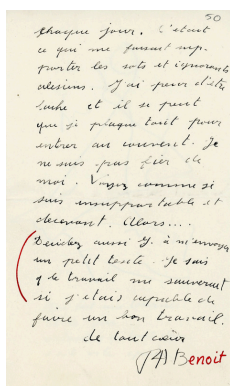 50
chaque jour. C'etait
ce qui me faisait sup-
porter les sots et ignorants
alesiens. J'ai peur d'être
lache et il se peut
que je plaque tout pour
entrer au couvent. Je
ne suis pas fier de
moi. Voyez comme si
suis insupportable et
decevant. Alors....
Decidez aussi Y. à m'envoyer
un petit texte. Je sais
q le travail me sauverait
si j'etais capable de
faire un bon travail.
de tout cœur
Benoit